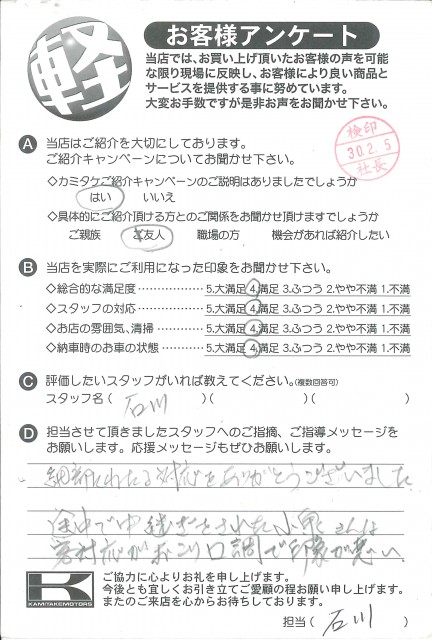 軽
お客様アンケート
当店では、お買い上げ頂いたお客様の声を可能
な限り現場に反映し、お客様により良い商品と
サービスを提供する事に努めています。
大変お手数ですが是非お声をお聞かせ下さい。
検印
30.2.5
社長
A 当店はご紹介を大切にしております。
ご紹介キャンペーンについてお聞かせ下さい。
◇カミタケご紹介キャンペーンのご説明はありましたでしょうか
はい いいえ
◇具体的にご紹介頂ける方とのご関係をお聞かせ頂けますでしょうか
ご親族 ご友人 職場の方 機会があれば紹介したい
B 当店を実際にご利用になった印象をお聞かせ下さい。
◇総合的な満足度……………5.大満足 4.満足 3.ふつう 2.やや不満 1.不満
◇スタッフの対応……………5.大満足 4.満足 3.ふつう 2.やや不満 1.不満
◇お店の雰囲気、清掃………5.大満足 4.満足 3.ふつう 2.やや不満 1.不満
◇納車時のお車の状態………5.大満足 4.満足 3.ふつう 2.やや不満 1.不満
C 評価したいスタッフがいれば教えてください。(複数回答可)
スタッフ名( 石川 )( )( )
D 担当させて頂きましたスタッフへのご指摘、ご指導メッセージを
お願いします。応援メッセージもぜひお願いします。
対応をありがとうございました
途中で中継ぎをされた小泉さんは
対応がおこり口調で印象が悪い
K
KAMITAKEMOTORS
ご協力に心よりお礼を申し上げます。
今後とも宜しくお引き立てご愛顧の程お願い申し上げます。
またのご来店を心からお待ちしております。
担当( 石川 )